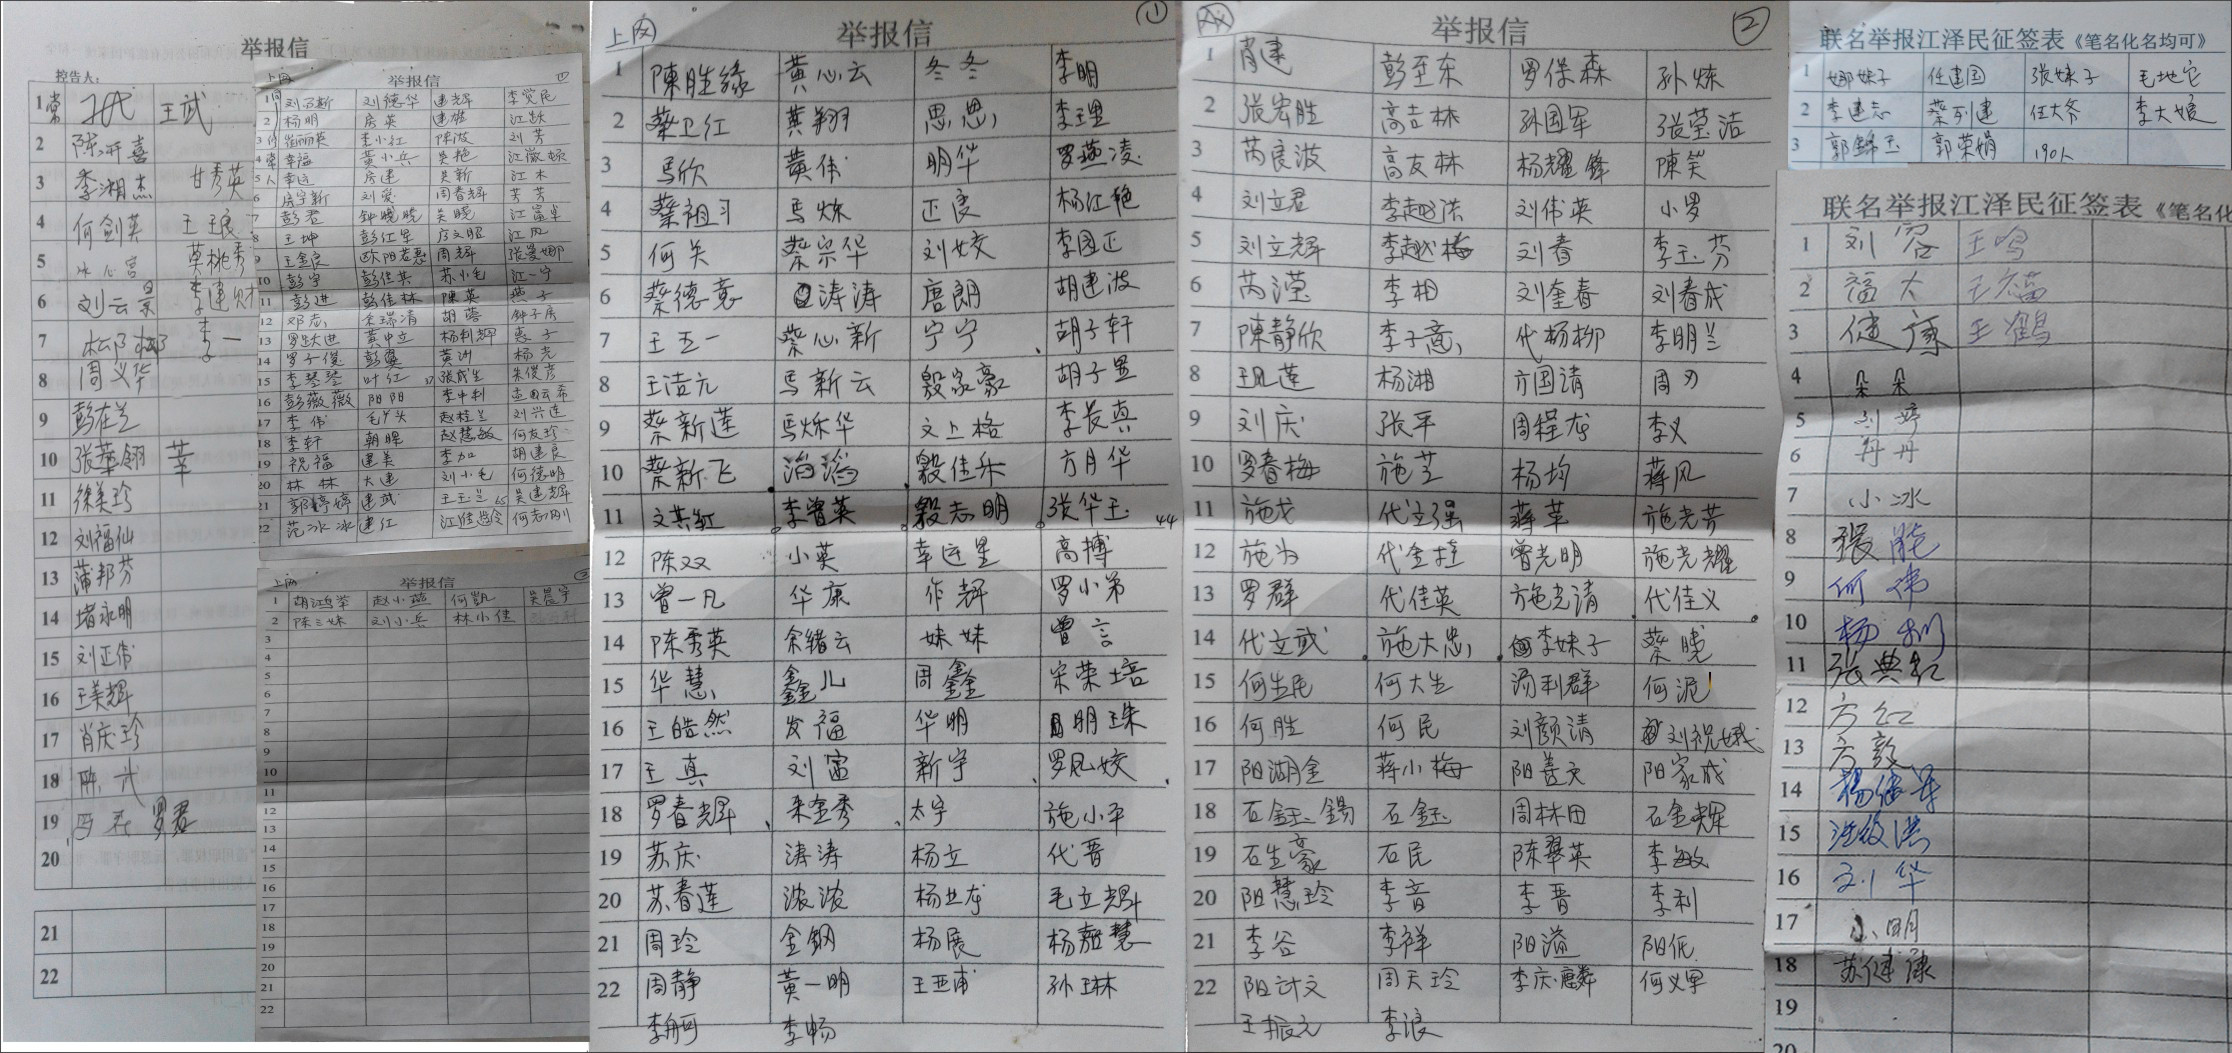 举报信
控告人:
1 王武
2 陈开喜
3 李湘杰 甘秀英
4 何剑英 王琅
5 莫桃秀
6 刘云景 李建财
7 李一
8 周义华
9 彭在兰
10 张华翎 莘
11 徐美珍
12 刘福仙
13 蒲邦芳
14 堵永明
15 刘正伟
16 王美辉
17 肖庆珍
18 陈武
19 罗君
20
21
22
上网 举报信 四
1 刘德华 建辉 李觉民
2 杨明 房英 建雄 江跃
3 崔丽英 李小红 陈波 刘芳
4 幸福 黄小兵 吴艳
5 幸运 房建 吴新 江木
6 房宇新 刘爱 周春辉 芳芳
7 彭君 钟晓晓 吴晓 江富卓
8 王坤 彭红军 房文昭 江凤
9 王金良 周辉 张曼娜
10 彭宇 彭佳英 苏小毛 江一宁
11 彭进 彭佳林 陳英 燕子
12 邓志 胡蓉 钟子房
13 罗跃进 黄中立 杨利辉 惠子
14 罗子俊 彭翼 黄洲 杨光
15 李琴琴 叶红 张成生 朱俊彦
16 彭薇薇 阳阳 李中利
17 李伟 毛丫头 赵桂兰 刘兴连
18 李轩 朝晖 赵慧敏 何友珍
19 祝福 建美 李加 胡建良
20 林林 大建 刘小毛 何德明
21 郭婷婷 建武 王玉兰 吴建辉
22 范冰冰 建红 何志刚
上网 举报信
1 胡鸿举 赵小燕 何凯 吴晨宇
2 陈三妹 刘小兵 林小佳
3
4
5
6
7
8
9
10
11
12
13
14
15
16
17
18
19
20
21
22
上网 举报信 ①
1 陳胜缘 黄心云 冬冬 李明
2 蔡卫红 黄翔 思思 李理
3 馬欣 黄伟 明华 罗燕凌
4 蔡祖习 馬烁 正良 杨江艳
5 何关 蔡宗华 刘姣 李国正
6 蔡德意 涛涛 唐朗 胡建波
7 王五一 蔡心新 宁宁 胡子轩
8 王洁元 馬新云 殷家豪 胡子昱
9 蔡新莲 馬烁华 文上格 李长真
10 蔡新飞 滔滔 毅佳乐 方月华
11 文其红 李曾英 毅志明 张华玉 44
12 陈双 小英 幸运星 高搏
13 曾一凡 华康 作辉 罗小弟
14 陈秀英 余绪云 妹妹 曾言
15 华慧 鑫儿 周鑫 宋荣培
16 王皓然 发福 华明 明珠
17 王真 刘富 新宇 罗凤姣
18 罗春辉 来金秀 太宇 施小平
19 苏庆 涛涛 杨立 代晋
20 苏春莲 浓浓 杨业龙 毛立辉
21 周玲 金钢 杨展 杨嘉慧
22 周静 黄一明 王亚甫 孙琳
李舸 李畅
举报信 ②
1 肖建 彭至东 罗保森 孙炼
2 张宏胜 高吉林 孙国军 张莹洁
3 芮良波 高友林 杨耀锋 陳笑
4 刘立君 李越洪 刘伟英 小罗
5 刘立辉 李越梅 刘春 李玉芬
6 芮滢 李相 刘奎春 刘春成
7 陳静欣 李子意 代杨柳 李明兰
8 王凤莲 杨湘 方国清 周刃
9 刘庆 张平 周程龙 李义
10 罗春梅 施芝 杨均 蒋风
11 施戈 代立强 蒋革 施光芳
12 施为 代金拉 曾光明 施光耀
13 罗群 代佳英 施光清 代佳义
14 代立武 施大忠 李妹子 蔡晓
15 何生民 何大生 汤利群 何泥
16 何胜 何民 刘颜清 刘祝娥
17 阳湖金 蒋小梅 阳善文 阳家成
18 石鈺錫 石鈺 周林田 石金辉
19 石生豪 石民 陈翠英 李敏
20 阳慧玲 李音 李晋 李利
21 李谷 李祥 阳溢 阳低
22 阳计文 周天玲 李庆麟 何义军
王振元 李浪
联名举报江泽民征签表《笔名化名均可》
1 娜妹子 任建国 張妹子 毛地它
2 李建志 蔡列建 任大爷 李大娘
3 郭錦玉 郭荣娟 190人
联名举报江泽民征签表《笔名化
1 刘容 王鸣
2 福大 王福
3 健康 王鹤
4 朵朵
5 刘婷
6 丹丹
7 小冰
8 張艳
9 何伟
10 杨钊
11 张典红
12 方红
13 方毅
14 楊健军
15
16 刘华
17 小明
18 苏健康
19
20